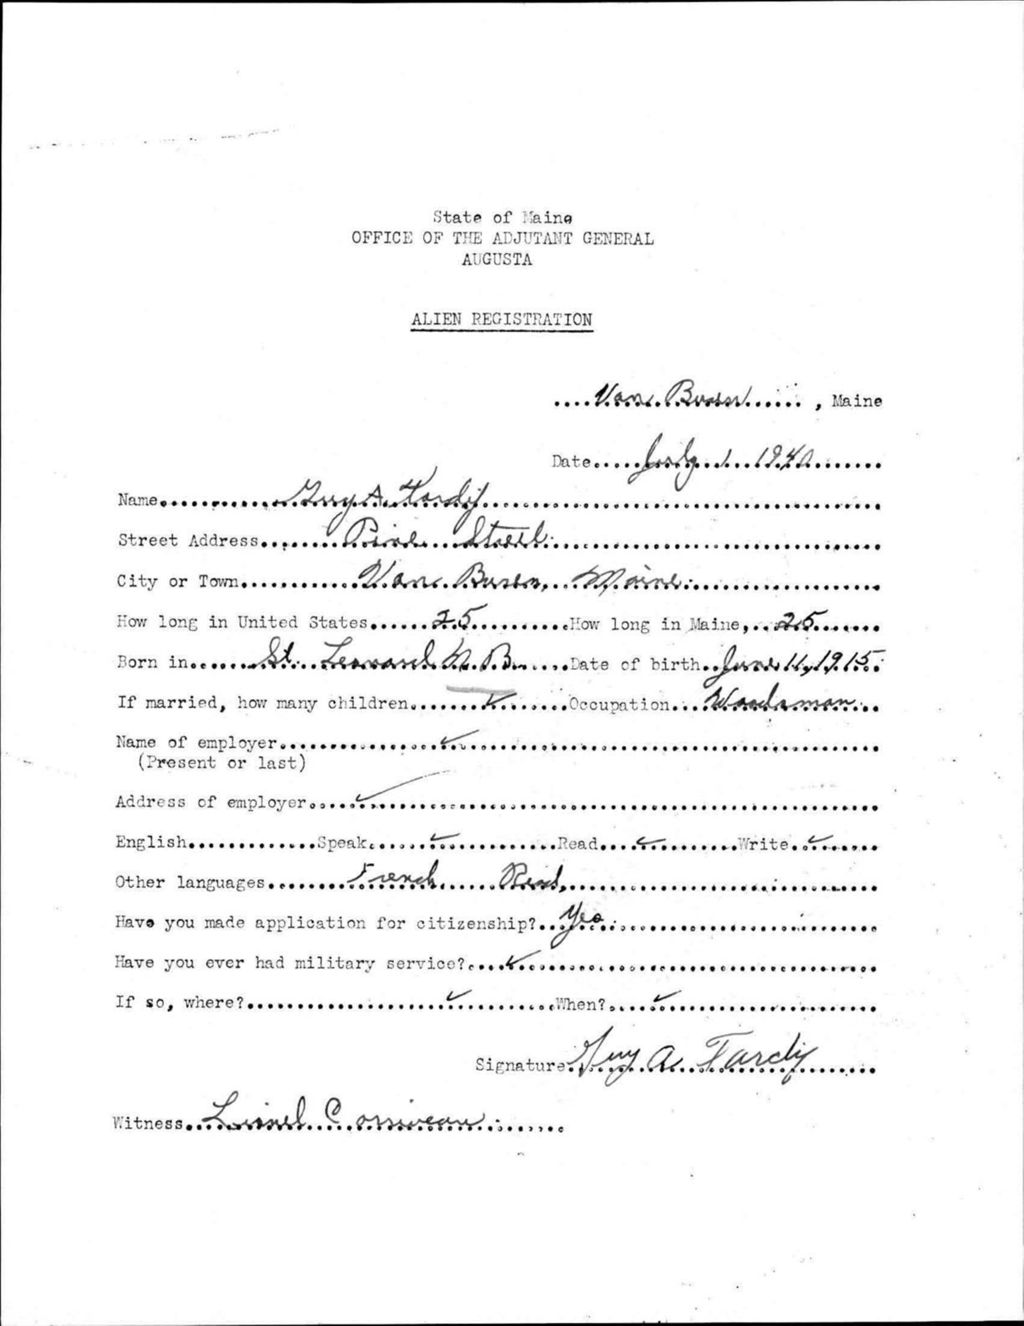 State of Maine
OFFICE OF THE ADJUTANT GENERAL
AUGUSTA
ALIEN REGISTRATION
....Van Buren......, Maine
Date.....July 1 1940.......
Name...........Guy A. Tardif...........
Street Address.......Pine Street...........
City or Town...........Van Buren, Maine...........
How long in United States......25..........How long in Maine,..25.......
Born in......St. Leonard N.B......Date of birth..June 11, 1915.
If married, how many children.......✓.......Occupation...Woodsman...
Name of employer...............✓...........
(Present or last)
Address of employer.....✓...........
English.............Speak......✓............Read....✓..........Write..✓......
Other languages........French......Read...........
Have you made application for citizenship?..Yes...........
Have you ever had military service?....✓...........
If so, where?...................✓..........When?....✓...........
Signature Guy A. Tardif.......
Witness...Lionel Corriveau.......